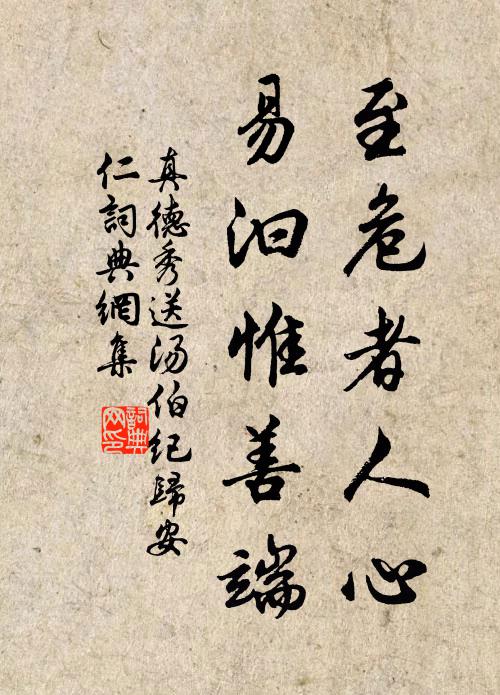 至危者人心
易汩惟善端
真德秀送汤伯纪歸安
仁詞典網集
詞典网印